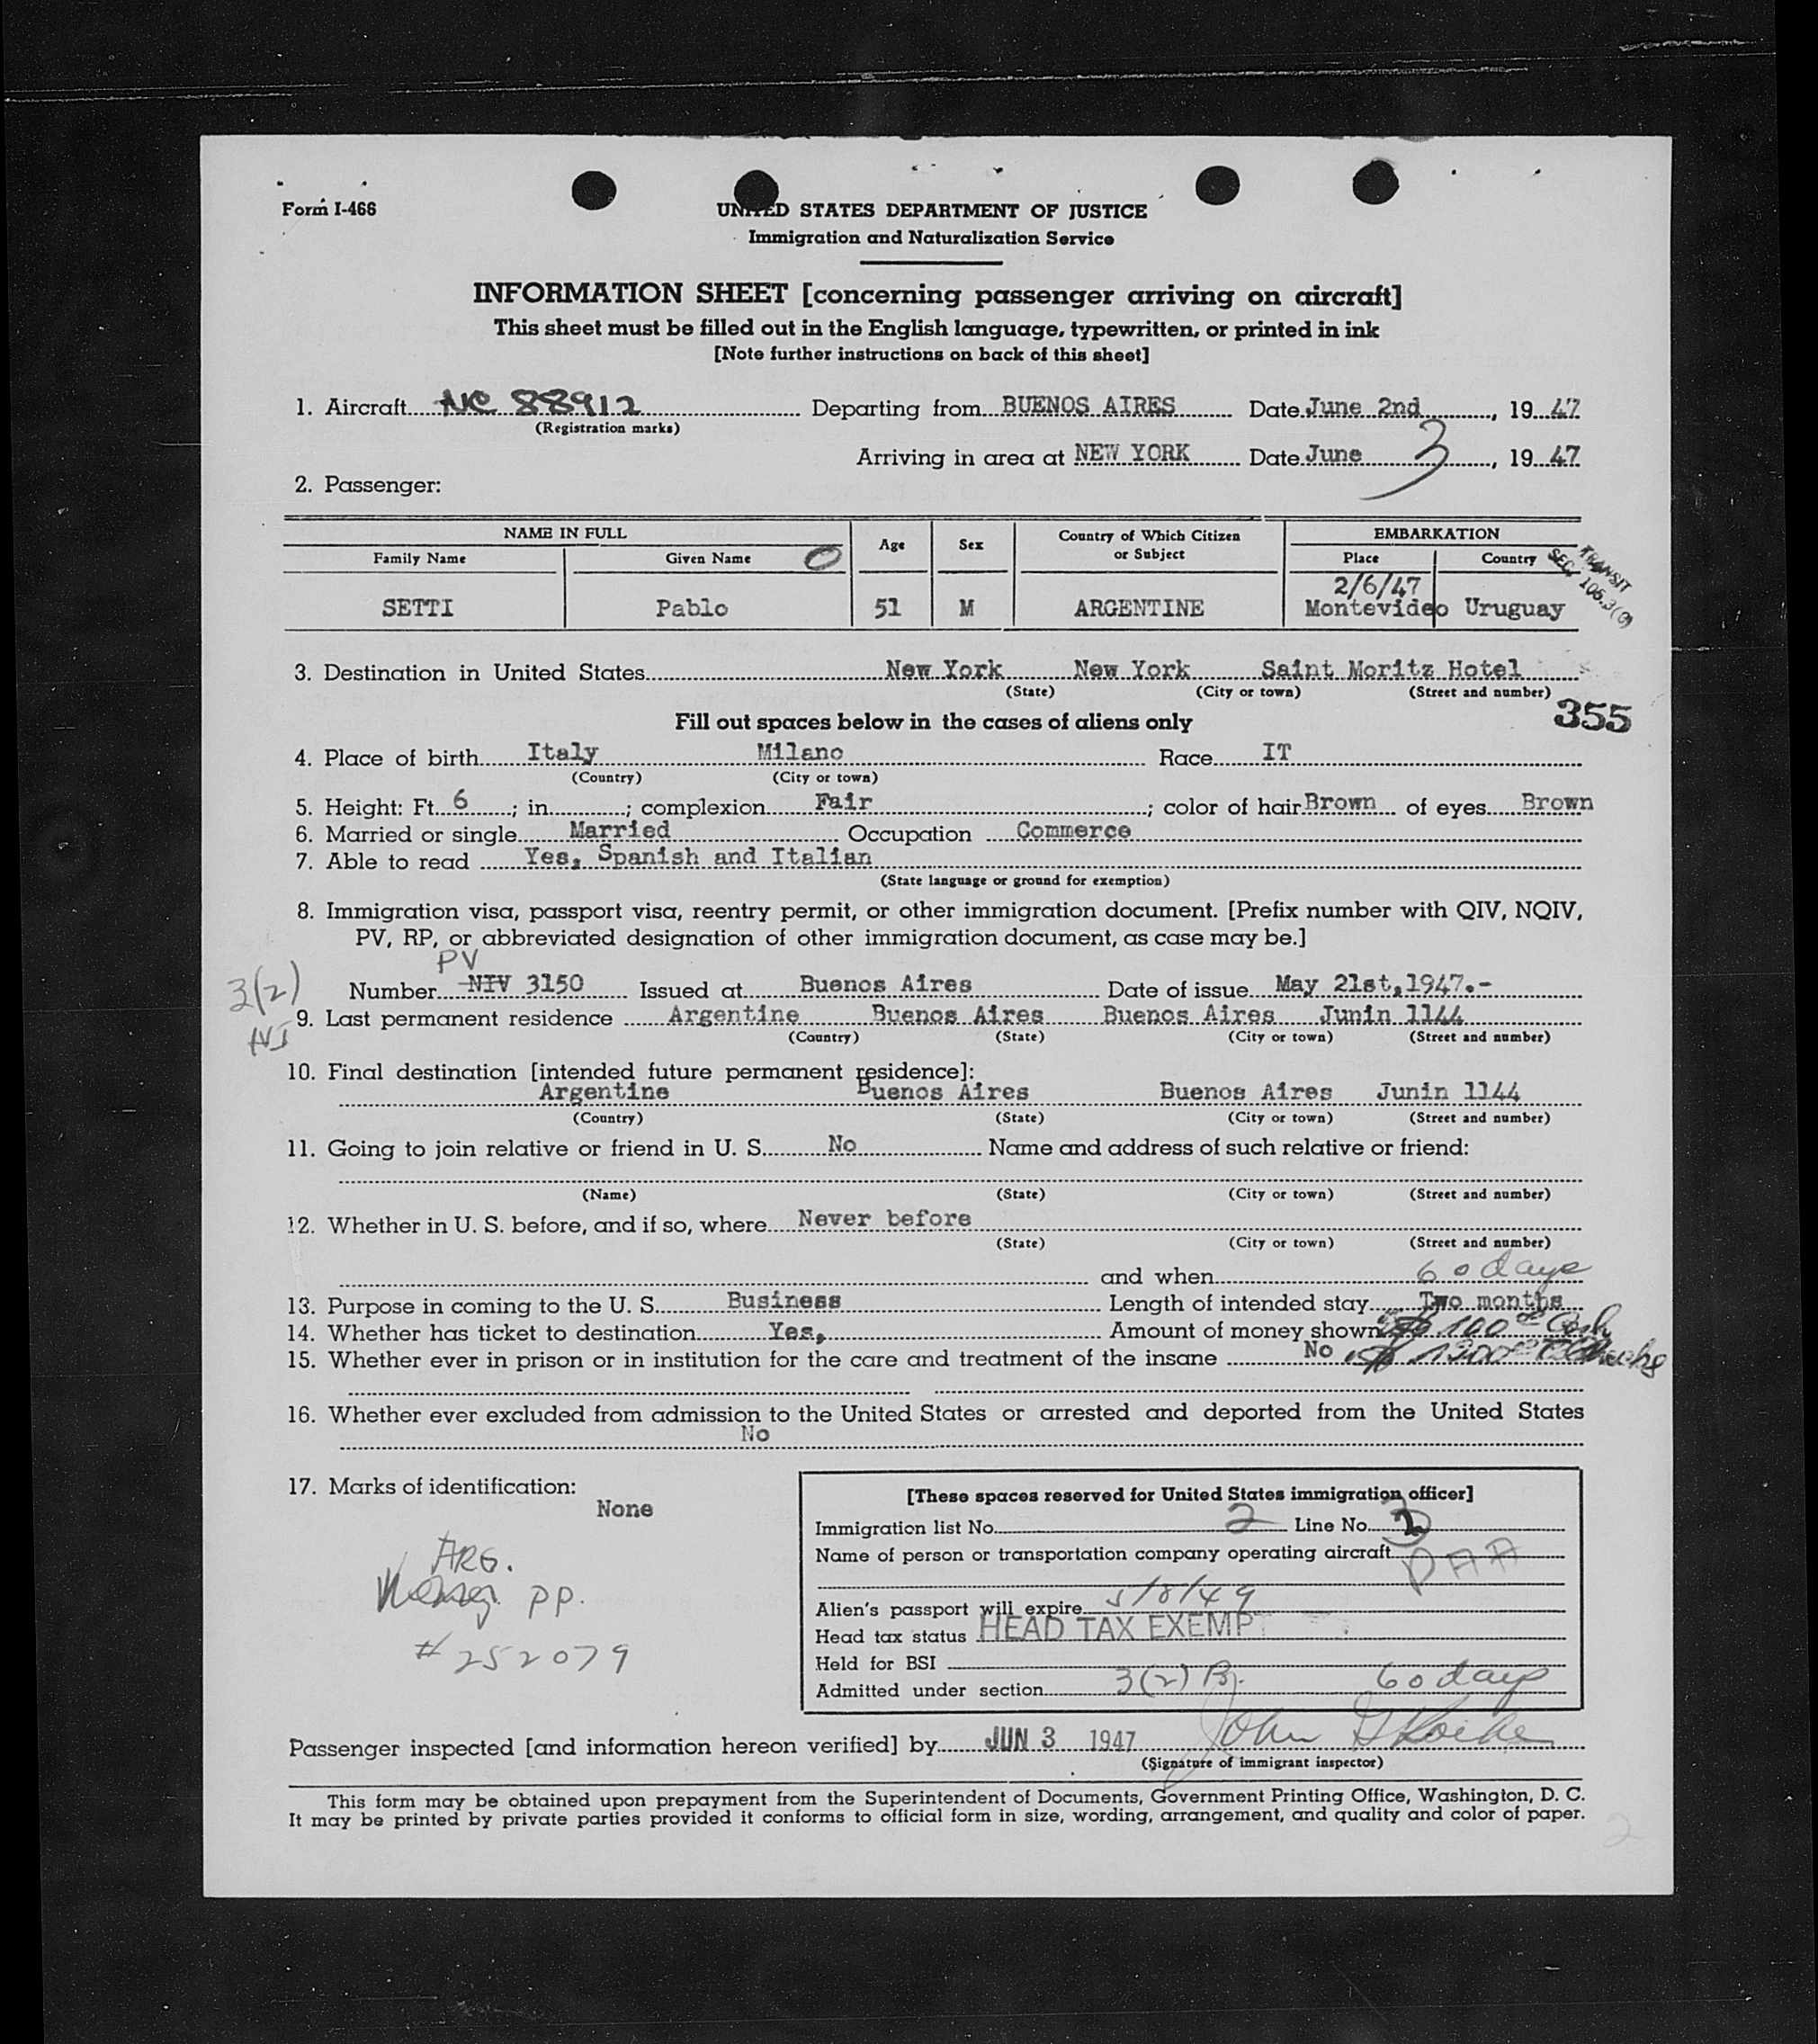 Form I-466
UNITED STATES DEPARTMENT OF JUSTICE
Immigration and Naturalization Service
INFORMATION SHEET [concerning passenger arriving on aircraft]
This sheet must be filled out in the English language, typewritten, or printed in ink
[Note further instructions on back of this sheet]
1. Aircraft NC 88912 Departing from BUENOS AIRES Date June 2nd, 19 47
(Registration marks)
Arriving in area at NEW YORK Date June 3, 19 47
2. Passenger:
NAME IN FULL Age Sex Country of Which Citizen or Subject EMBARKATION
Family Name Given Name Place Country
TRANSIT
SEC. 105.3(
2/6/47
SETTI Pablo 51 M ARGENTINE Montevideo Uruguay
3. Destination in United States New York New York Saint Moritz Hotel
(State) (City or town) (Street and number)
355
Fill out spaces below in the cases of aliens only
4. Place of birth Italy Milano Race IT
(Country) (City or town)
5. Height: Ft. 6; in.; complexion Fair; color of hair Brown of eyes Brown
6. Married or single Married Occupation Commerce
7. Able to read Yes, Spanish and Italian
(State language or ground for exemption)
8. Immigration visa, passport visa, reentry permit, or other immigration document. [Prefix number with QIV, NQIV,
PV, RP, or abbreviated designation of other immigration document, as case may be.]
PV
3(2)
Number NIV 3150 Issued at Buenos Aires Date of issue May 21st,1947.-
9. Last permanent residence Argentine Buenos Aires Buenos Aires Junin 1144
(Country) (State) (City or town) (Street and number)
10. Final destination [intended future permanent residence]:
Argentine Buenos Aires Buenos Aires Junin 1144
(Country) (State) (City or town) (Street and number)
11. Going to join relative or friend in U. S. No Name and address of such relative or friend:
(Name) (State) (City or town) (Street and number)
12. Whether in U. S. before, and if so, where Never before
(State) (City or town) (Street and number)
and when 60 days
13. Purpose in coming to the U. S. Business Length of intended stay Two months
14. Whether has ticket to destination Yes, Amount of money shown 100 Cash
15. Whether ever in prison or in institution for the care and treatment of the insane No
16. Whether ever excluded from admission to the United States or arrested and deported from the United States
No
17. Marks of identification:
None
ARG.
pp.
# 252079
[These spaces reserved for United States immigration officer]
Immigration list No. 2 Line No.
Name of person or transportation company operating aircraft PAA
Alien's passport will expire 5/8/49
Head tax status HEAD TAX EXEMPT
Held for BSI
Admitted under section 3(2) B. 60 days
Passenger inspected [and information hereon verified] by JUN 3 1947 John
(Signature of immigrant inspector)
This form may be obtained upon prepayment from the Superintendent of Documents, Government Printing Office, Washington, D. C.
It may be printed by private parties provided it conforms to official form in size, wording, arrangement, and quality and color of paper.
2